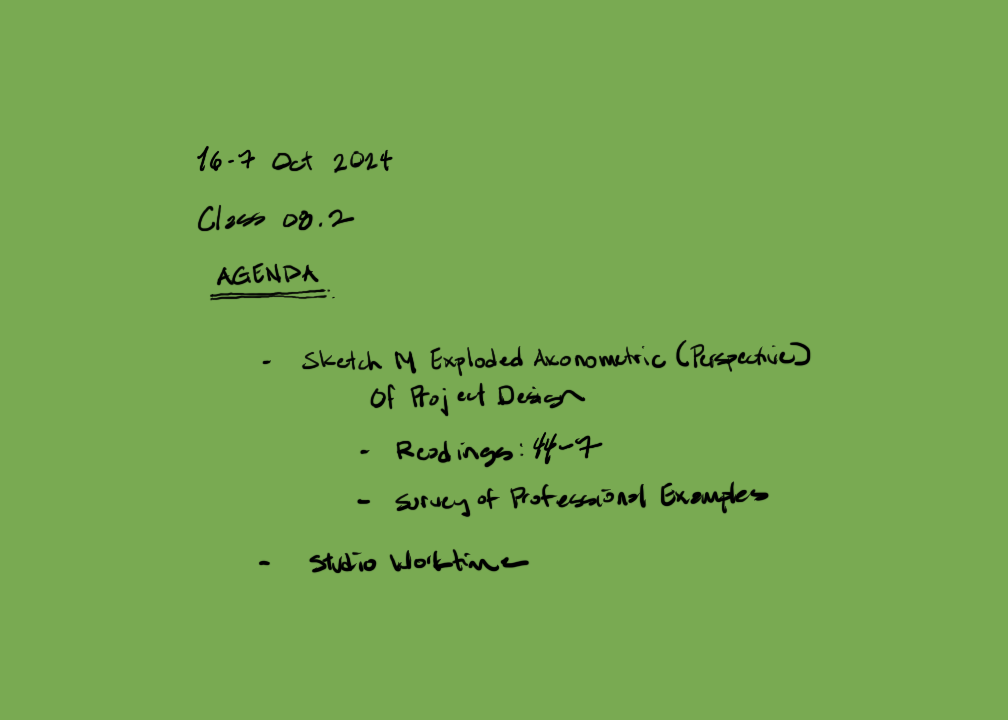 16-7 Oct 2024
Class 08.2
AGENDA
- Sketch M Exploded Axonometric (Perspective)
Of Project Design
- Readings: 44-7
- Survey of Professional Examples
- Studio Worktime